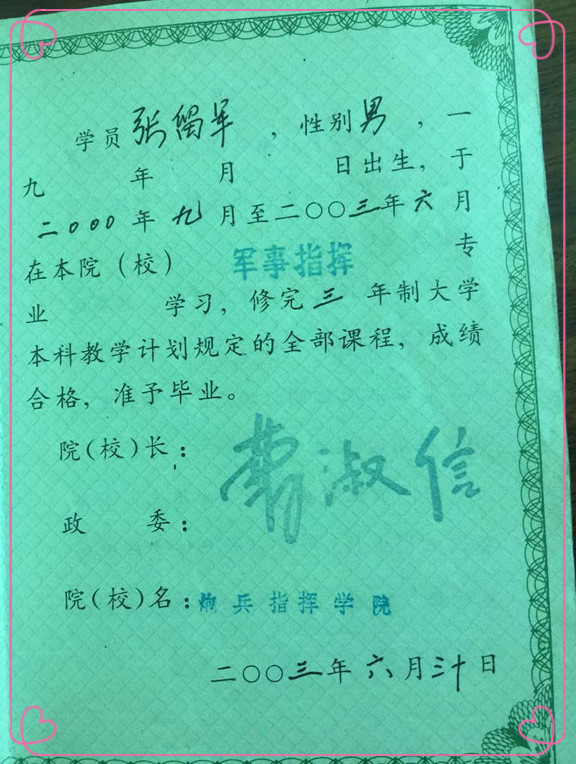 学员张留军，性别男，一
九 年 月 日出生，于
二000年九月至二〇〇三年六月
在本院（校） 军事指挥 专
业 学习，修完三 年制大学
本科教学计划规定的全部课程，成绩
合格，准予毕业。
院（校）长：
淑信
政 委：
院（校）名：炮兵指挥学院
二〇〇三年六月三十日